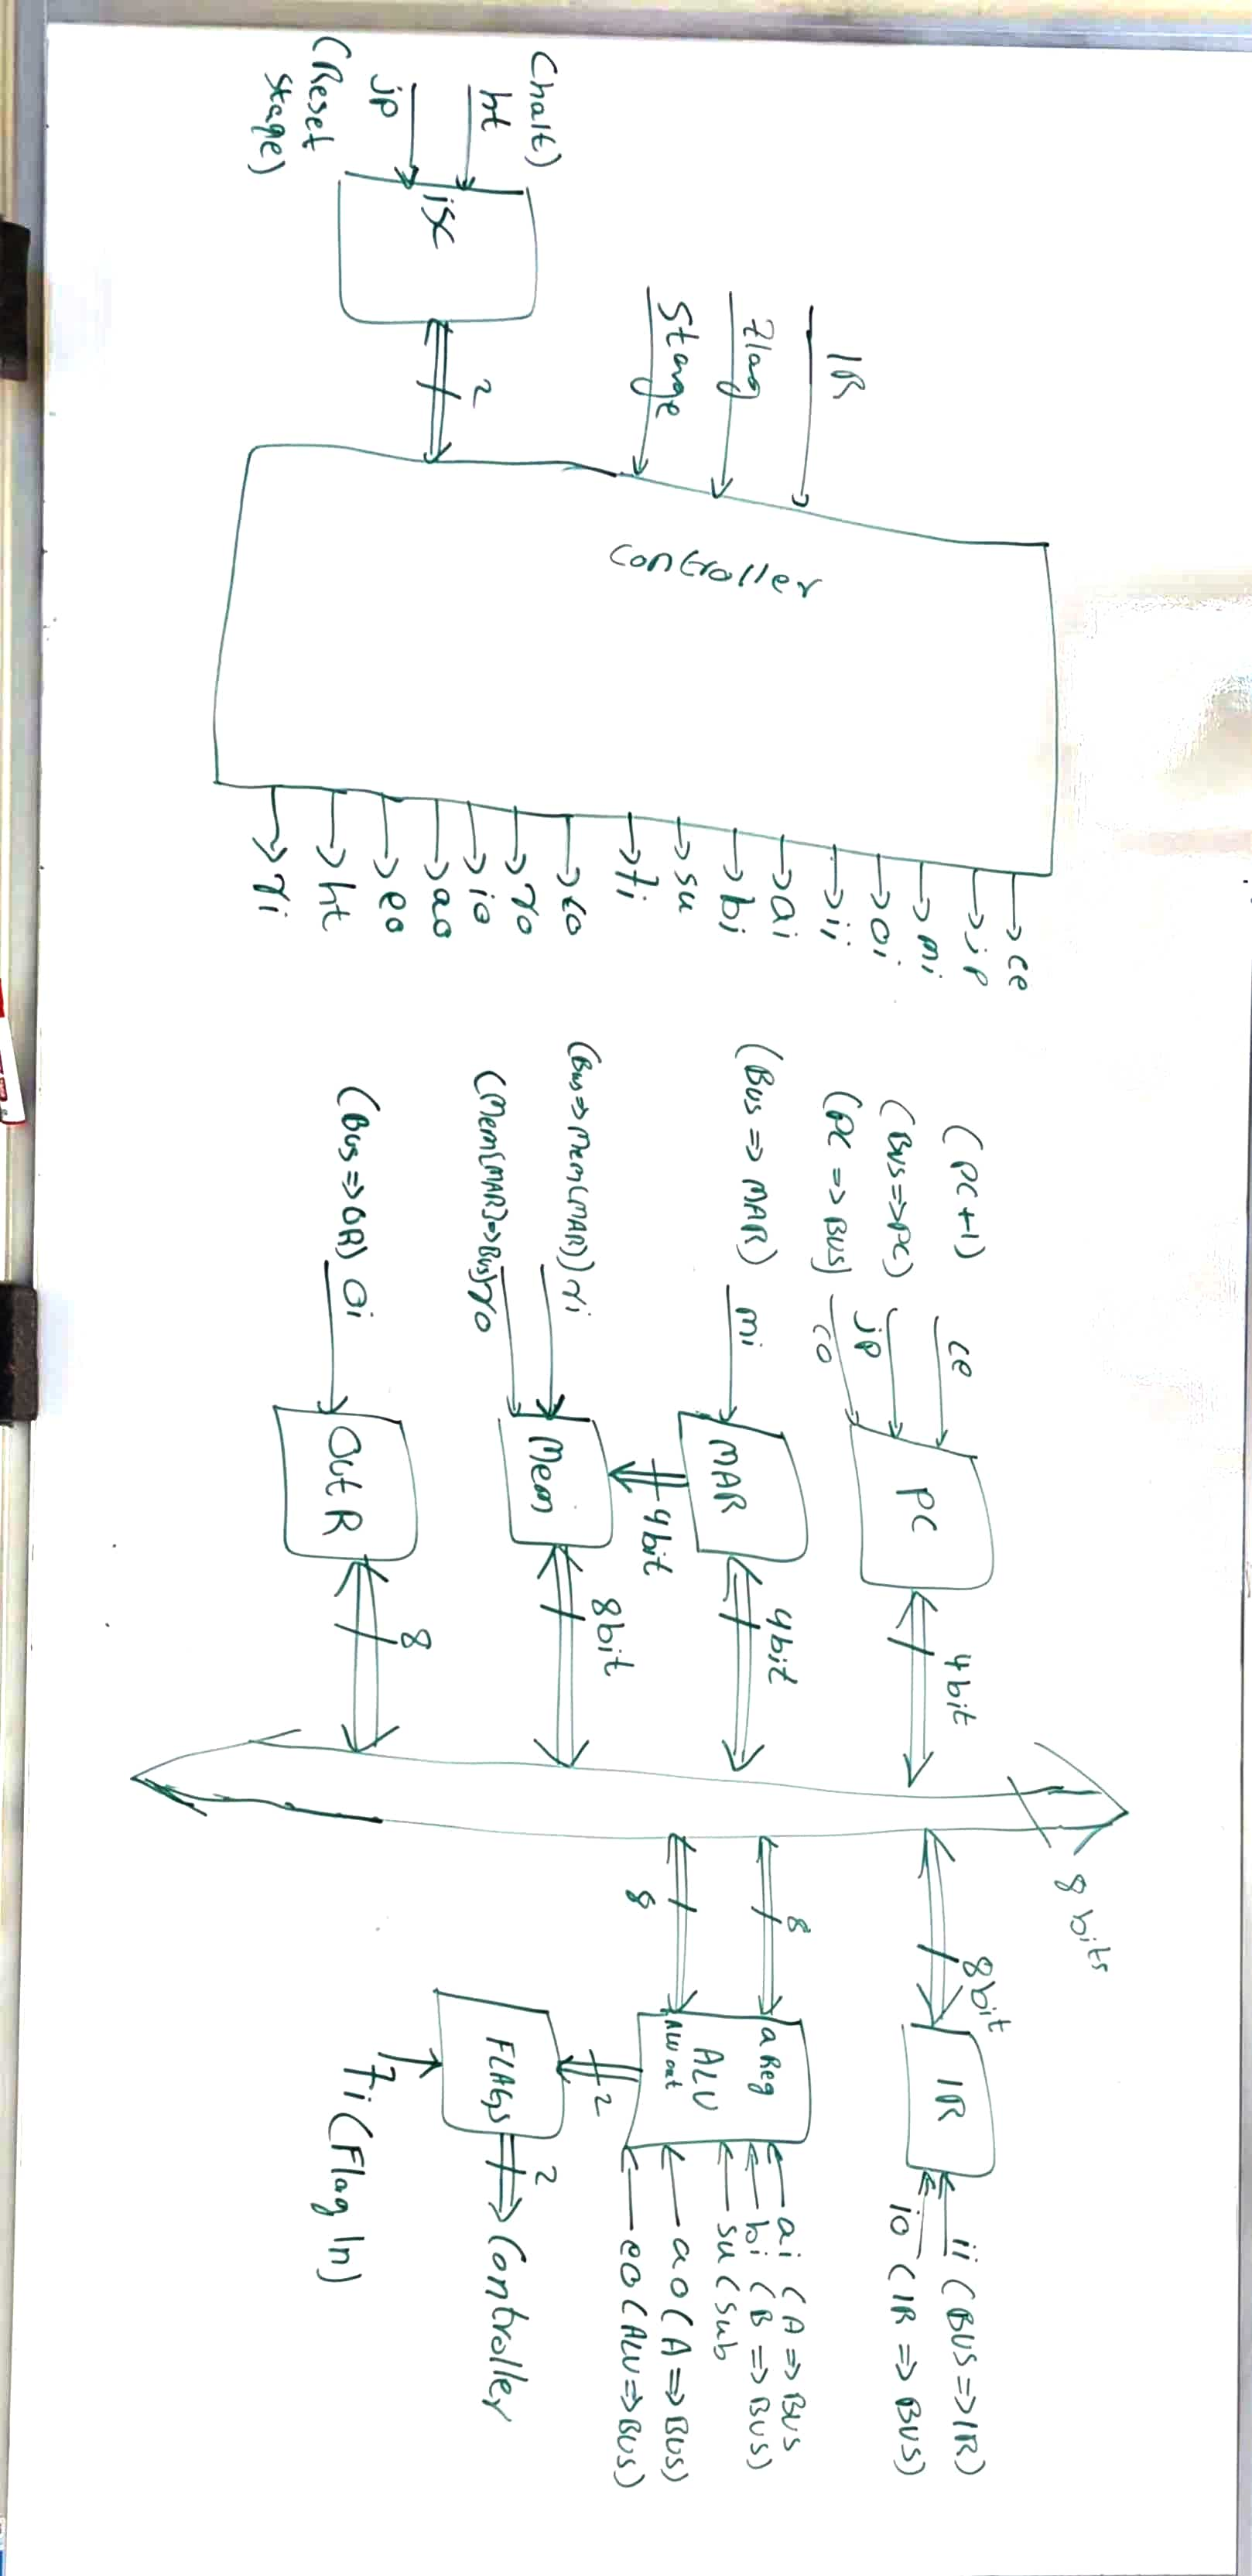 (halt)
ht
jp
(Reset
stage)
isc
2
IR
Flag
Stange
Controller
ce
jp
mi
oi
ii
ai
bi
su
fi
co
ro
io
ao
eo
ht
ri
(PC+1) ce
(BUS=>PC) jp
(PC => BUS) co
PC
4bit
(Bus => MAR) mi
MAR
4bit
4bit
(Bus=>Mem(MAR)) ri
(Mem[MAR]=>Bus) ro
Mem
8bit
(Bus=>OR) oi
Out R
8
8 bits
8bit
IR
ii (BUS=>IR)
io (IR => BUS)
8
8
a Reg
ALU
ALU out
ai (A => BUS
bi (B => BUS)
su (sub
ao (A => BUS)
eo (ALU=>BUS)
2
FLAGS
2
Controller
fi (Flag In)